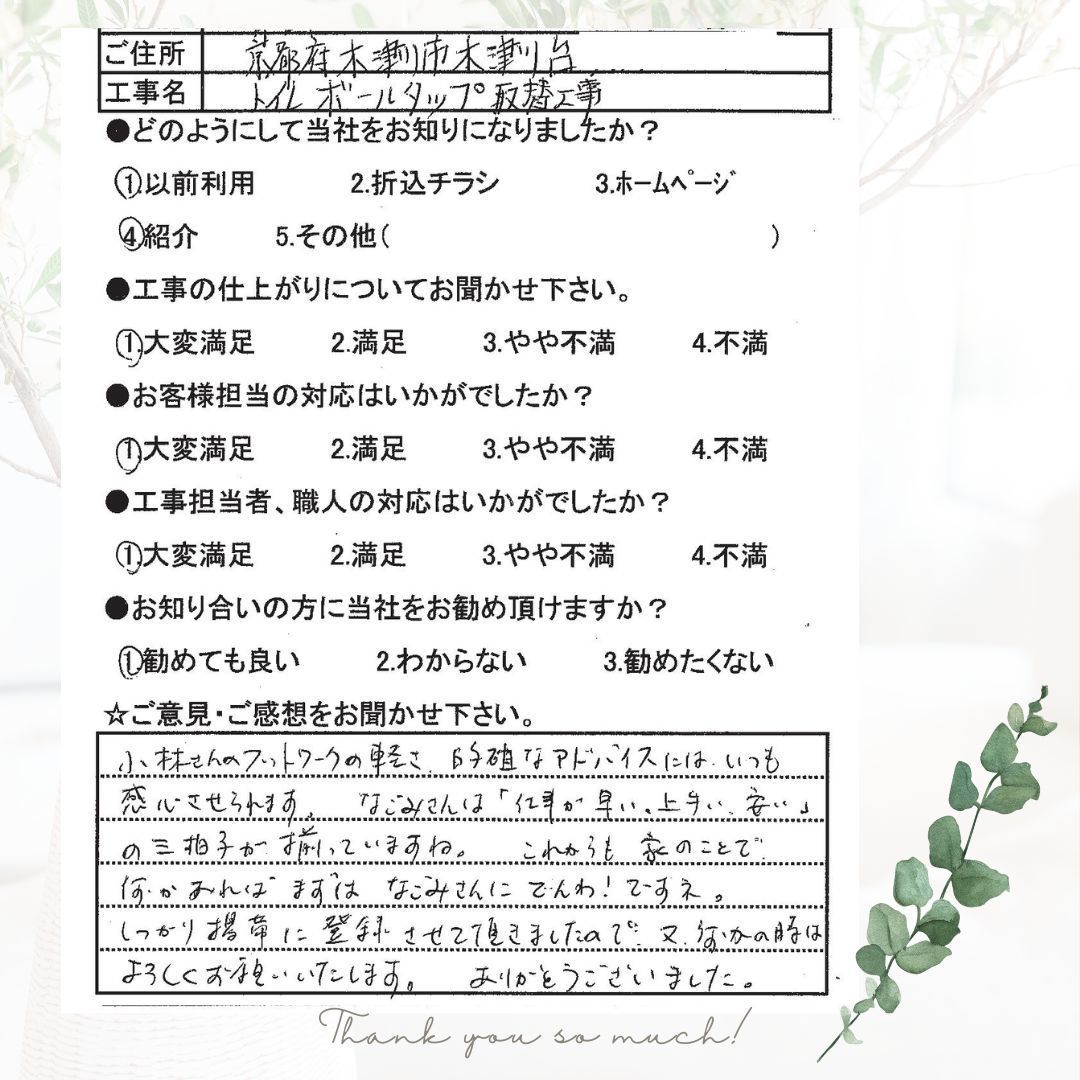 ご住所 京都府木津川市木津川台
工事名 トイレ ボールタップ取替工事
●どのようにして当社をお知りになりましたか？
①以前利用 2.折込チラシ 3.ホームページ
④紹介 5.その他( )
●工事の仕上がりについてお聞かせ下さい。
①.大変満足 2.満足 3.やや不満 4.不満
●お客様担当の対応はいかがでしたか？
①.大変満足 2.満足 3.やや不満 4.不満
●工事担当者、職人の対応はいかがでしたか？
①.大変満足 2.満足 3.やや不満 4.不満
●お知り合いの方に当社をお勧め頂けますか？
①勧めても良い 2.わからない 3.勧めたくない
☆ご意見・ご感想をお聞かせ下さい。
小林さんのフットワークの軽さ、的確なアドバイスには、いつも
感心させられます。 なごみさんは「仕事が早い、上手い、安い」
の三拍子が揃っていますね。 これからも 家のことで
何かあれば まずは なごみさんに でんわ！ですネ。
しっかり携帯に登録させて頂きましたので、又、何かの時は
よろしくお願いいたします。 ありがとうございました。
Thank you so much!